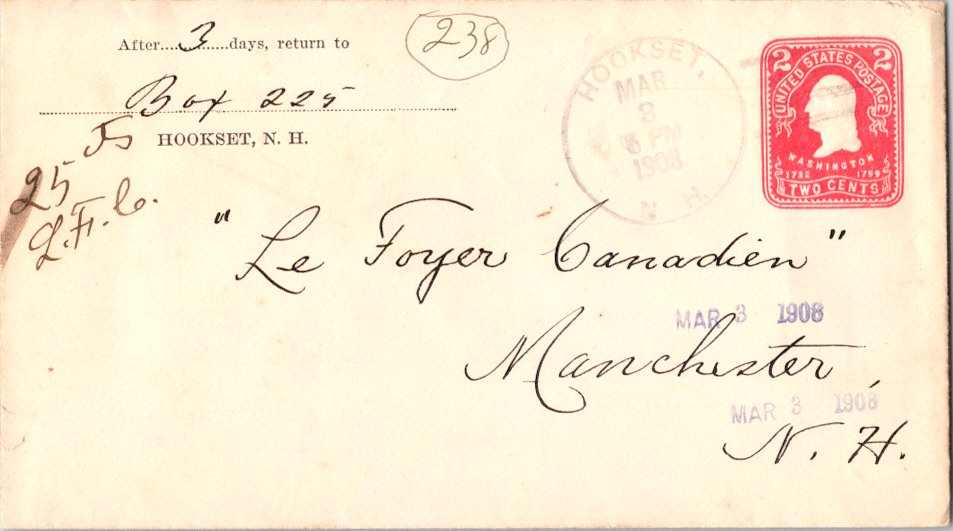 After....3......days, return to
Box 225
HOOKSET, N. H.
238
HOOKSET,
MAR
3
6 PM
1908
N. H.
2 2
UNITED STATES POSTAGE
WASHINGTON
1732 1799
TWO CENTS
25
L. F. C.
"Le Foyer Canadien"
MAR 3 1908
Manchester,
MAR 3 1908
N. H.